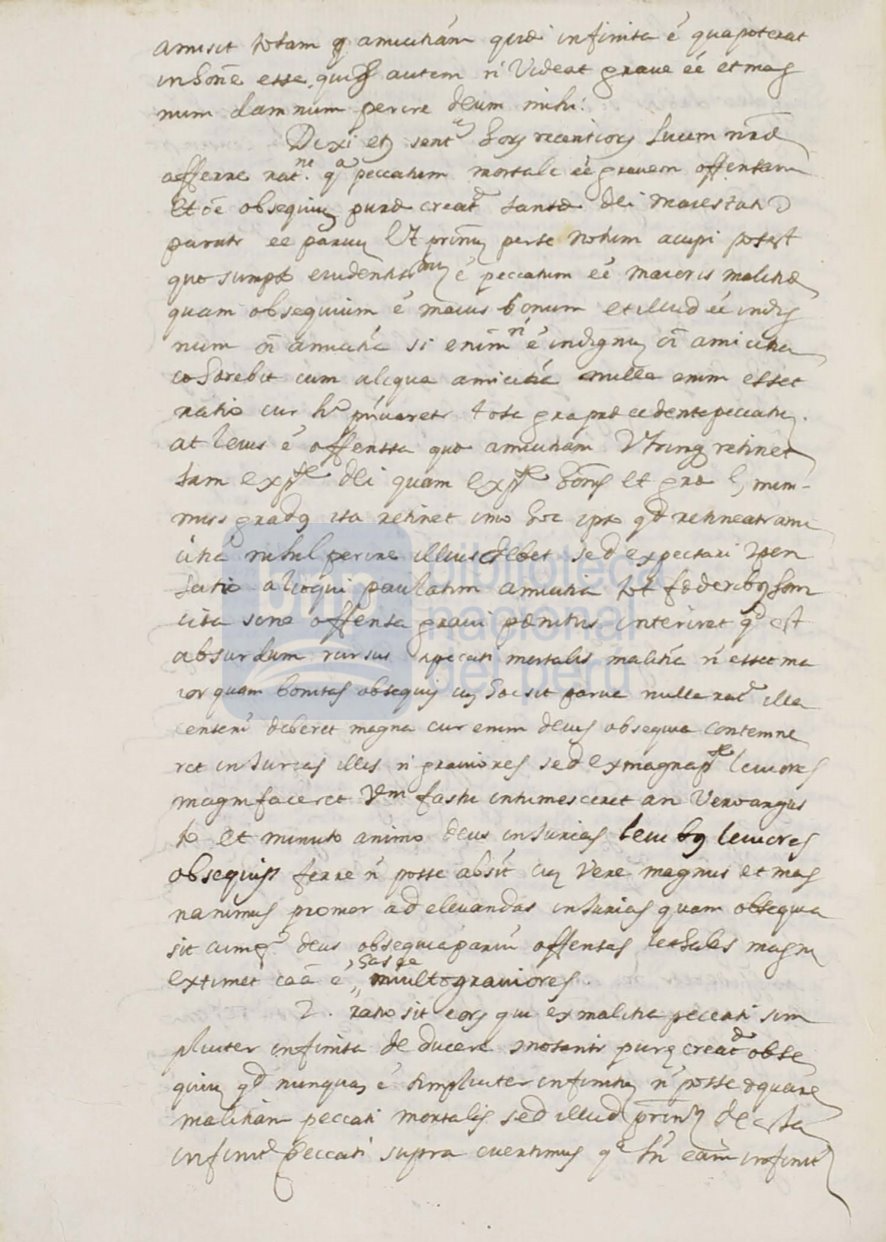 amisit totam q amicitiam quidi infinita é qua poterat
in hoīe esse, autem ñ Videat graue eé et mag
num damnum perire deum mihi.
Dixi sent hos recentiores lucem
afferre peccatum mortale eé grauem offensam
Et obsequiū purae creat tantae dei maiestati
paruū Vt primū per se notum accipi potest
quo sumpto euidentissimū é peccatum eé maioris malitiae
quam obsequium é maius bonum et illud eé indig
num oī amicitia si enim ñ é indignū oī amicitia
cohaerebit cum aliqua amicitia nulla enim esset
ratio cur priuaretr tota gra praecedente peccatū.
at leuis é offenssa quae amicitiam Vtrinq retinet
tam ex pte dei quam ex pte hoīs et grae
mus ita retinet imo hoc ipso qd retineatr ami
citia nihil perire illius debet sed expectari
satio alioqui paulatim amicitia tot foederibq
cita sine offensa graui poenitus interiret qd est
absurdum rursus peccati mortalis malitia ñ esset ma
ior quam bonitas obsequij cū hoc sit parua nulla illa
censeri deberet magna cur enim deus obsequia contemne
ret iniurias illis ñ grauiores sed ex magna pte leuiores
magnifaceret Vm fastu intumesceret an Vero angus
to et minuto animo deus iniurias leuibq leuiores
obsequijs ferre ñ posse absit cū Vere magnus et mag
nanimus promor ad eleuandas iniurias quam obsequia
sit cumq deus obsequia parui offensas lethales magni
extimet caā é has multo grauiores
2. ratio sit eors qui ex malitia peccati sim
pliciter infinita deducere purae creatae obse
quiū qd nunquā é simpliciter infinitū ñ posse aequare
malitiam peccati mortalis sed illud
infinit peccati supra euertimus eam infinit